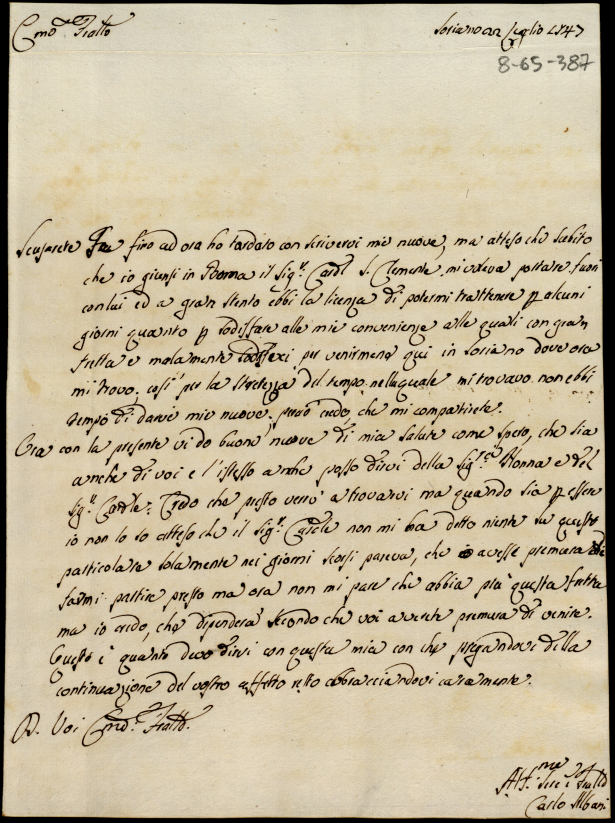 Cmo Fratto
Soriano 22 Luglio 1747
8-65-387
Scusarete se fino ad ora ho tardato con scrivervi mie nuove, ma atteso che subito
che io giunsi in Roma il Sigr. Cardl S. Clemente mi voleva portare fuori
con lui ed a gran stento ebbi la licenza di potermi trattenere p alcuni
giorni quanto p sodisfare alle mie convenienze alle quali con gran
fretta e malamente sodisfeci per venirmene qui in Soriano dove ora
mi trovo, così per la strettezza del tempo nella quale mi trovavo non ebbi
tempo di darvi mie nuove. però credo, che mi compatirete.
Ora con la presente vi do buone nuove di mia salute come spero, che sia
anche di voi e l'istesso anche posso dirvi della Sigra Nonna e del
Sigr. Cardle: Credo che presto verrò a trovarvi ma quando sia p essere
io non lo so atteso che il Sigr. Cardle non mi ha detto niente su questo
particolare solamente nei giorni scorsi pareva, che avesse premura di
farmi partire presto ma ora non mi pare che abbia più questa fretta
ma io credo, che dipenderà secondo che voi averete premura di venire.
Questo è quanto devo dirvi con questa mia con che pregandovi della
continuazione del vostro affetto resto abbracciandovi caramente.
D. Voi Cmo. Fratto.
Aff.mo Sere e Fratto
Carlo Albani